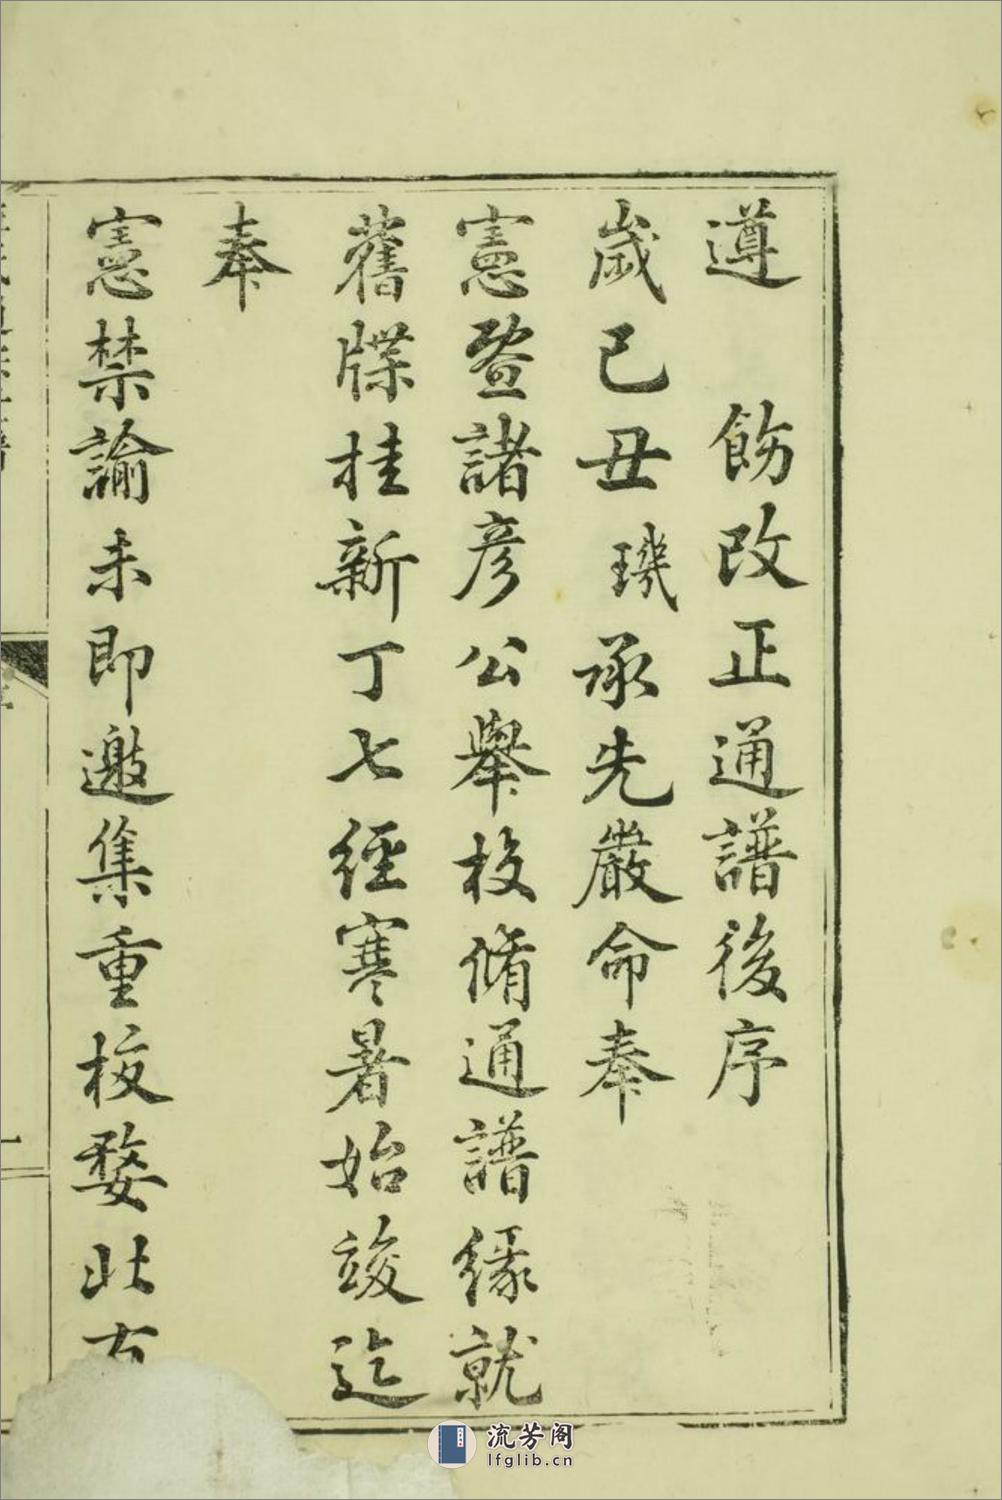 遵 飭改正通譜後序
歲己丑璣承先嚴命奉
憲暨諸彥公舉校脩通譜緣就
舊牒挂新丁七經寒暑始竣迄
奉
憲禁諭未即邀集重校婺北
流芳阁
lfglib.cn